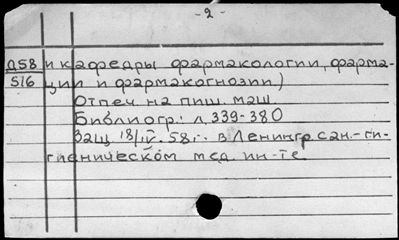 - 2 -
Д58 и кафедры фармакологии, фарма-
516 ции и фармакогнозии)
Отпеч. на пиш. маш.
Библиогр.: л. 339-380
Защ. 18/IV. 58 г. в Ленингр. сан.-ги-
гиеническом мед. ин-те.